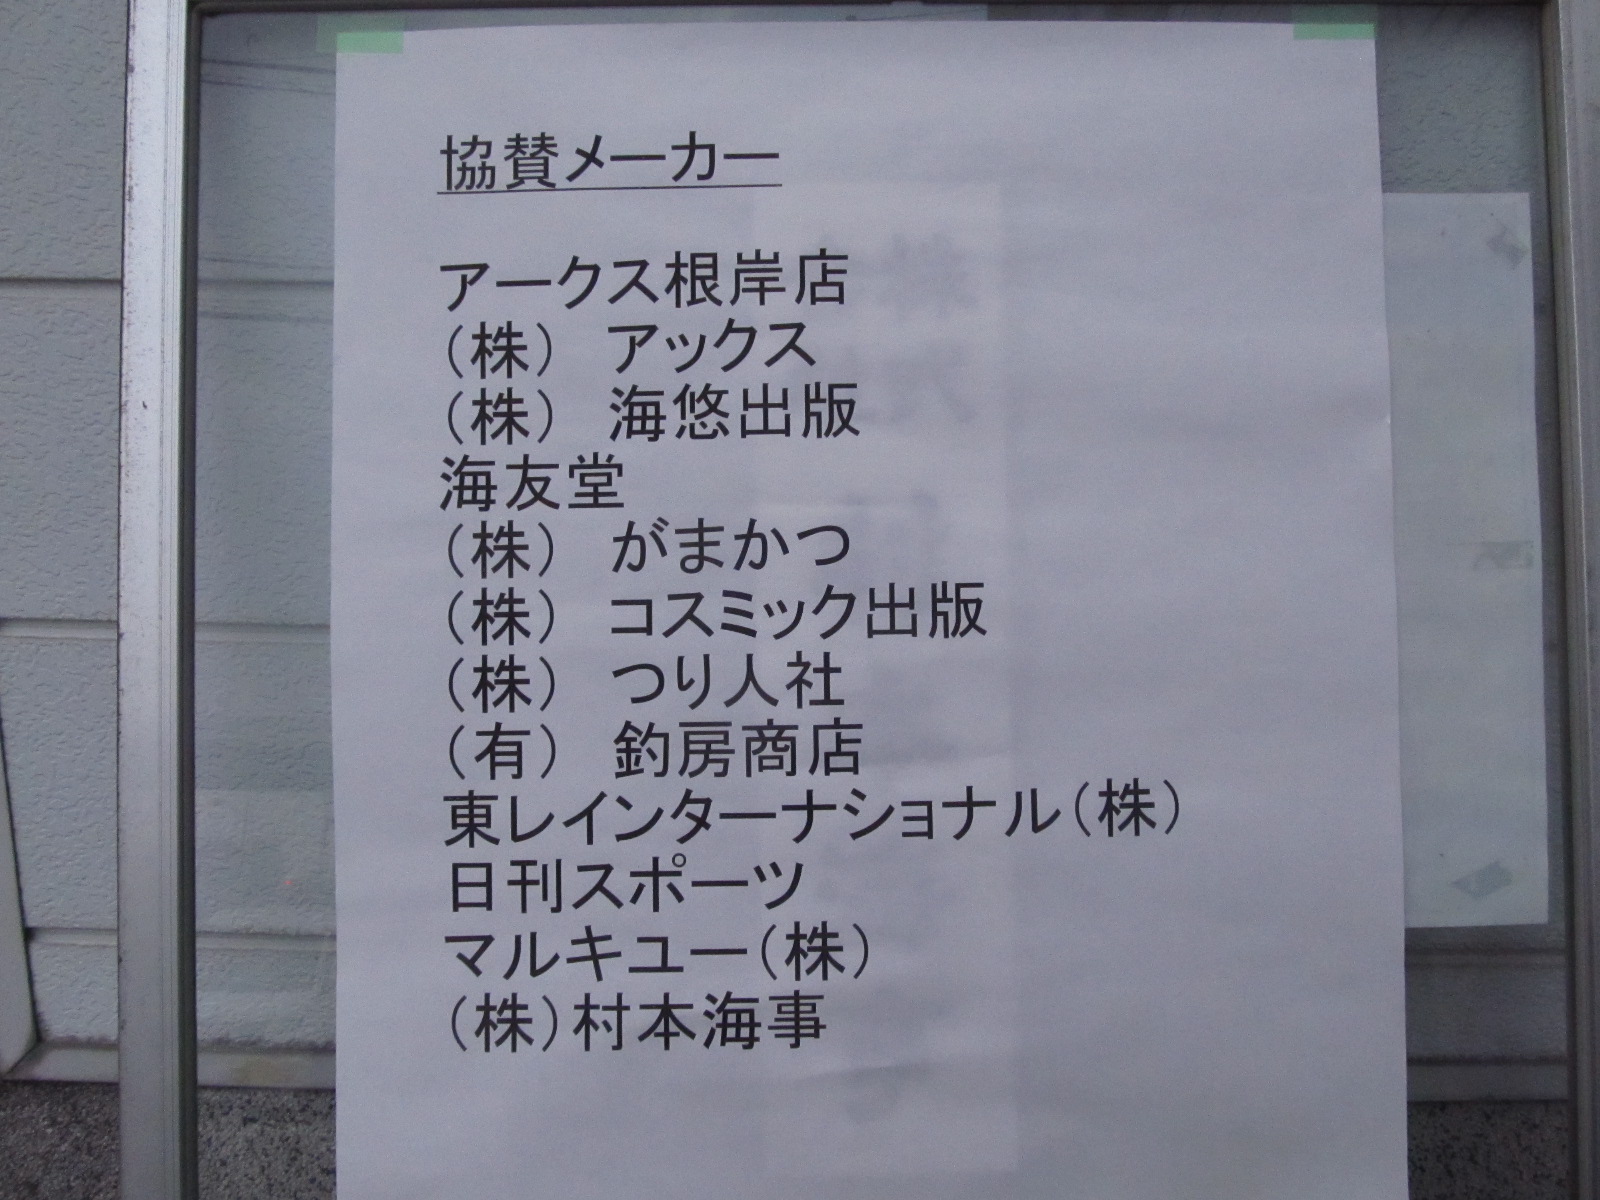 協賛メーカー
アークス根岸店
（株）　アックス
（株）　海悠出版
海友堂
（株）　がまかつ
（株）　コスミック出版
（株）　つり人社
（有）　釣房商店
東レインターナショナル（株）
日刊スポーツ
マルキユー（株）
（株）村本海事